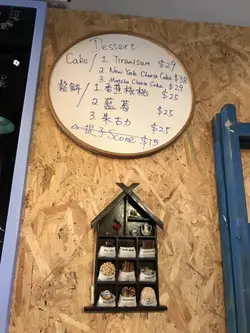 Dessert
Cake / 1. Tiramisum $29
2. New York Cheese Cake $38
3. Matcha Cheese Cake $29
鬆餅 / 1. 香蕉核桃 $25
2. 藍莓 $25
3. 朱古力 $25
提子Scone $15